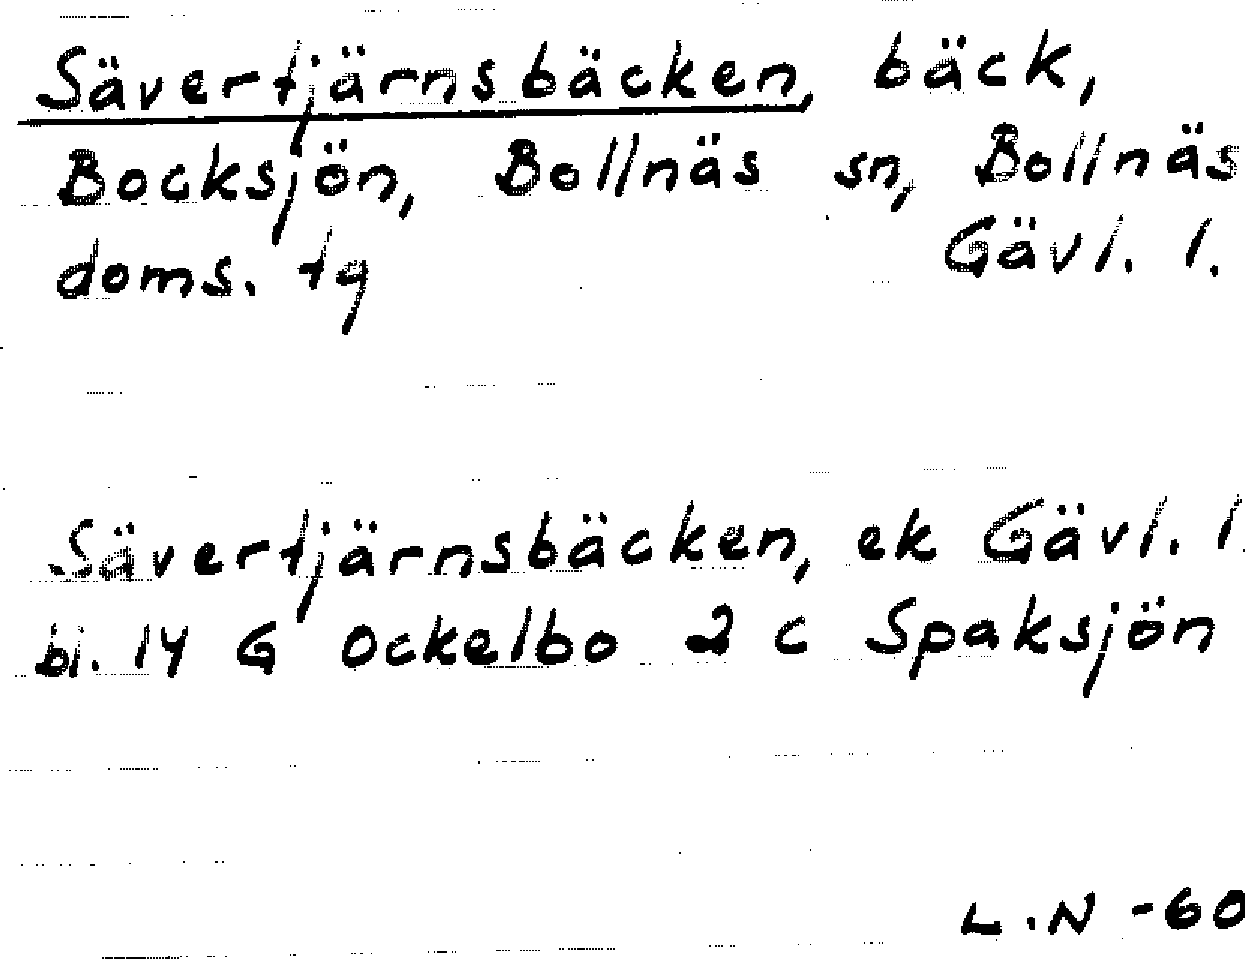 Sävertjärnsbäcken, bäck,
Bocksjön, Bollnäs sn, Bollnäs
doms. tg Gävl. l.
Sävertjärnsbäcken, ek Gävl. l.
bi. 14 G Ockelbo 2 c Spaksjön
L.N -60